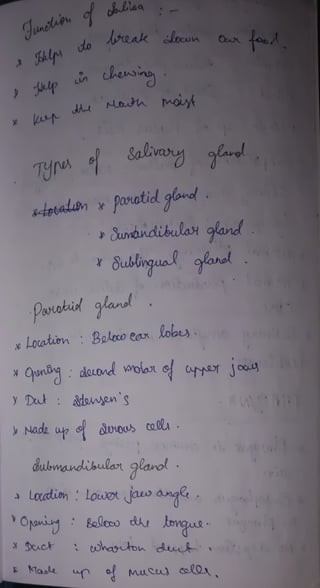 Function of Saliva :-
* Helps to break down our food.
* Help in chewing.
* Keep the mouth moist
Types of Salivary gland.
* Location * Parotid gland.
* Sumandibular gland.
* Sublingual gland.
Parotid gland.
* Location : Below ear lobes.
* Opening : second molar of upper jaw
* Dut : Stensen's
* Made up of serous cells.
Submandibular gland.
* Location : Lower jaw angle.
* Opening : Below the tongue.
* Duct : wharton duct.
* Made up of mucus cells.